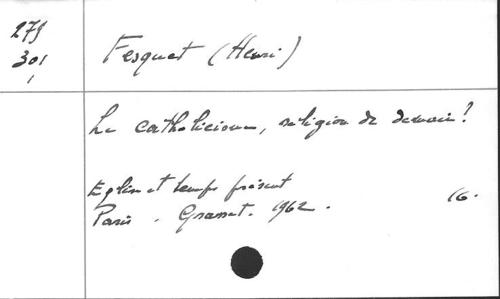 279
301
Fesquet (Henri)
Le catholicisme, religion de demain?
Eglise et temps présent
Paris. Grasset. 1962.
16.